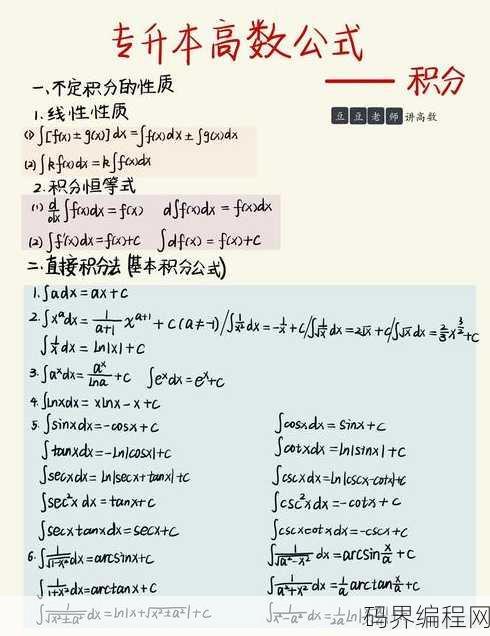 专升本高数公式
——积分
豆豆老师讲高数
一、不定积分的性质
1.线性性质
(1) ∫[f(x)±g(x)]dx=∫f(x)dx±∫g(x)dx
(2) ∫kf(x)dx=k∫f(x)dx
2.积分恒等式
(1) d/dx ∫f(x)dx=f(x) d∫f(x)dx=f(x)dx
(2) ∫f'(x)dx=f(x)+C ∫df(x)=f(x)+C
二、直接积分法(基本积分公式)
1.∫adx=ax+C
2.∫x^a dx=1/(a+1) x^(a+1)+C(a≠-1)/∫1/x² dx=-1/x+C/∫1/√x dx=2√x+C/∫√x dx=2/3 x^(3/2)+C
∫1/x dx=ln|x|+C
3.∫a^x dx=a^x/lna+C ∫e^x dx=e^x+C
4.∫lnxdx=xlnx-x+C
5.∫sinxdx=-cosx+C ∫cosxdx=sinx+C
∫tanxdx=-ln|cosx|+C ∫cotxdx=ln|sinx|+C
∫secxdx=ln|secx+tanx|+C ∫cscxdx=ln|cscx-cotx|+C
∫sec²xdx=tanx+C ∫csc²xdx=-cotx+C
∫secxtanxdx=secx+C ∫cscxcotxdx=-cscx+C
6.∫1/√(1-x²) dx=arcsinx+C ∫1/√(a²-x²) dx=arcsin x/a+C
∫1/(1+x²) dx=arctanx+C ∫1/(a²+x²) dx=1/a arctan x/a+C
∫1/√(x²±a²) dx=ln|x+√(x²±a²)|+C ∫1/(x²-a²) dx=1/2a ln|
码界编程网